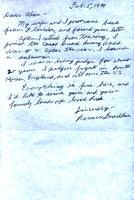 Feb. 5, 1990
Dear Alan
My wife and I just came back
from Florida, and found your letter.
After I retired from the ring, I
joined the Coast Guard during World
War # 2. After the war, I became
a salesman.
I was a judge for about
21 years. I judged fights in South
Korea, England, and all over the U.S.
Everything is fine here, and
I'd like to wish you and your
family loads of Good luck
Sincerely,
Bernie Friedkin